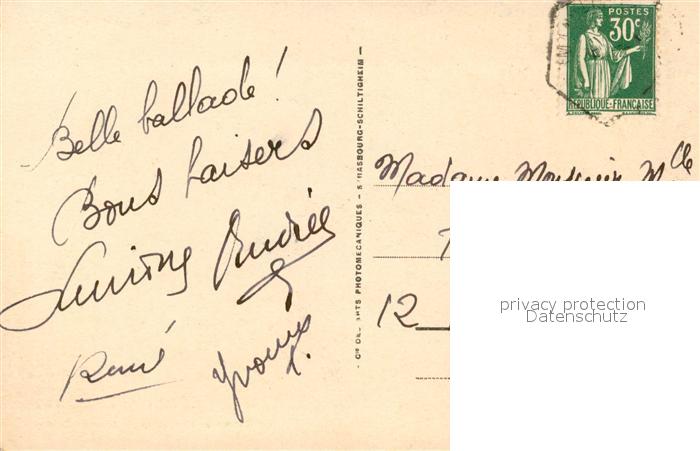 Belle ballade!
Bons baisers
Andrée
René
Yvonne
- Cie DES ARTS PHOTOMECANIQUES - STRASBOURG-SCHILTIGHEIM -
POSTES
30c
REPUBLIQUE-FRANÇAISE
Madame Mlle
12
privacy protection
Datenschutz